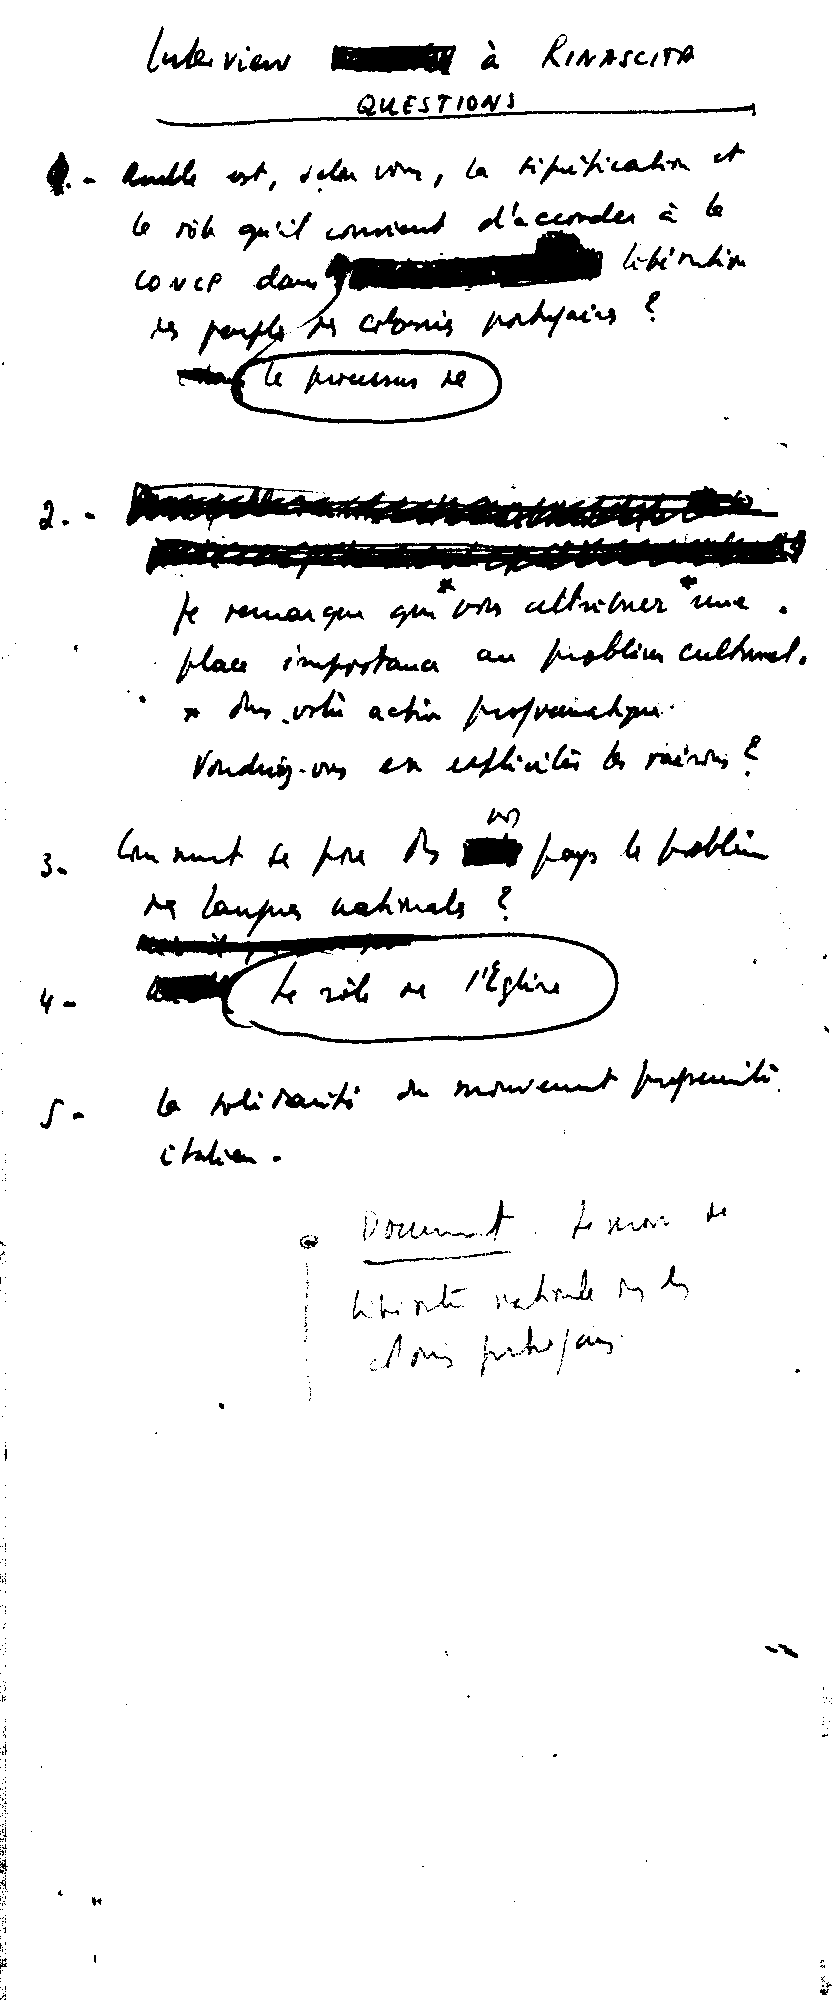 Interview à RINASCITA
QUESTIONS
1.- Quelle est, selon vous, la signification et
le rôle qu'il convient d'accorder à la
CONCP dans libération
des peuples des colonies portugaises ?
le processus de
2.-
Je remarque que * vous attribuez * une
place importance au problème culturel.
* dans votre action programatique.
Voudriez-vous en expliciter les raisons ?
vos
3- Comment se pose ds pays le problème
des langues nationales ?
4- Le rôle de l'Eglise
5- La solidarité du mouvement progressiste
italien.
Document. de
libération nationale ds les
colonies portugaises